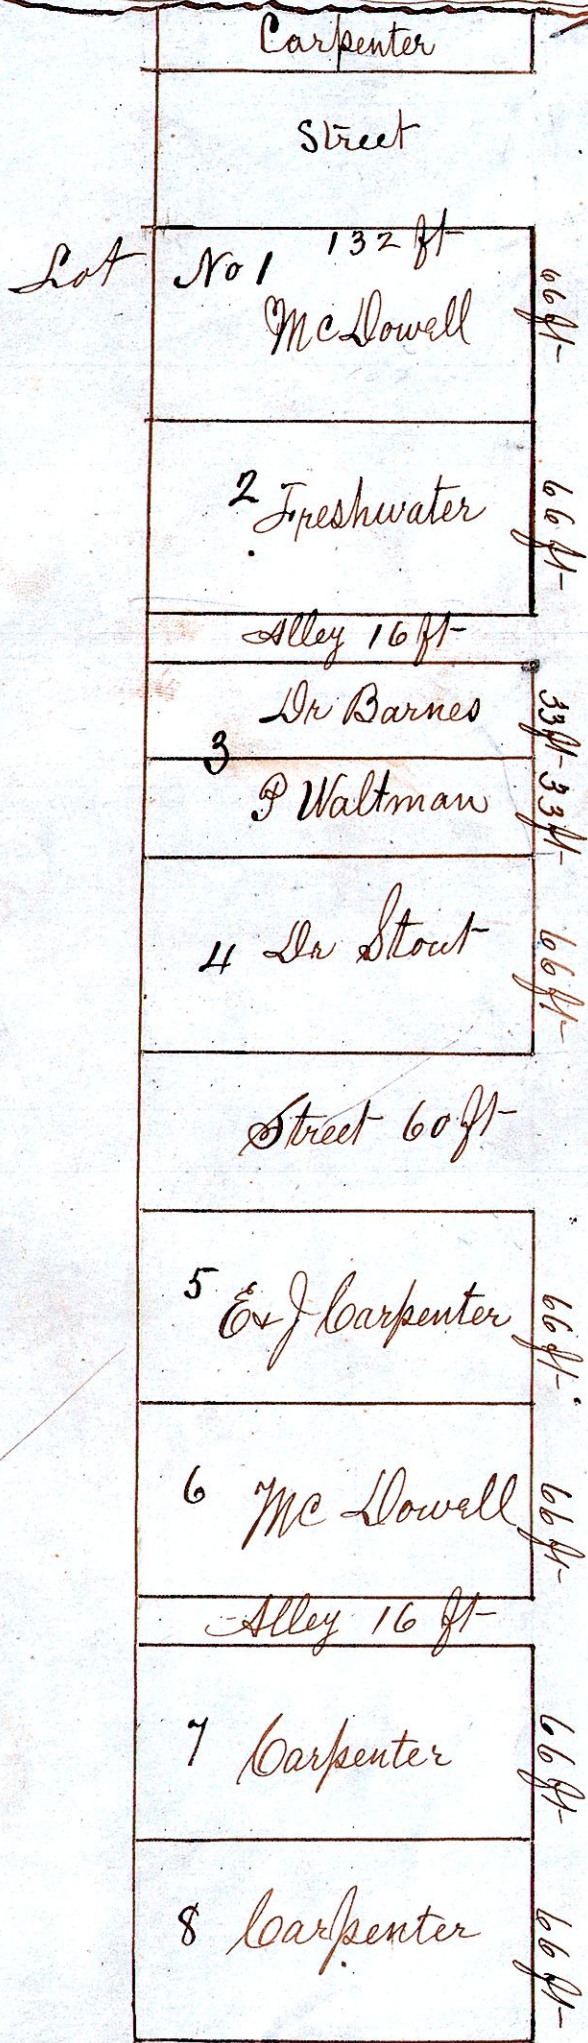 Carpenter
Street
Lot No 1 132 ft
McDowell
66 ft
2 Freshwater
66 ft
Alley 16 ft
Dr Barnes
33 ft
3
P Waltman
33 ft
4 Dr Stout
66 ft
Street 60 ft
5 E & J Carpenter
66 ft
6 Mc Dowell
66 ft
Alley 16 ft
7 Carpenter
66 ft
8 Carpenter
66 ft